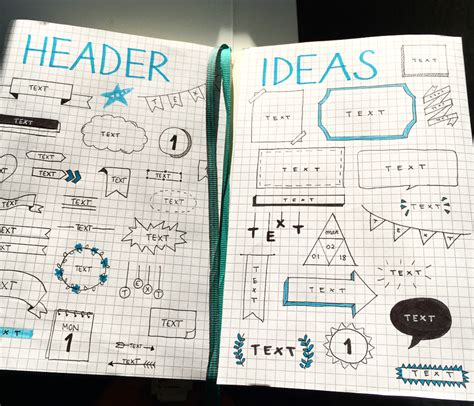 HEADER
TEXT
TEXT
TEXT
1
TEXT
TEXT
TEXT
TEXT
TEXT
TEXT
TEXT
TEXT
TEXT
MON
1
TEXT
TEXT
IDEAS
TEXT
TEXT
TEXT
TEXT
TEXT
TEXT
TEXT
TEXT
TEXT
TEXT
man
01 02 18
TEXT
TEXT
TEXT
TEXT
TEXT
1
TEXT